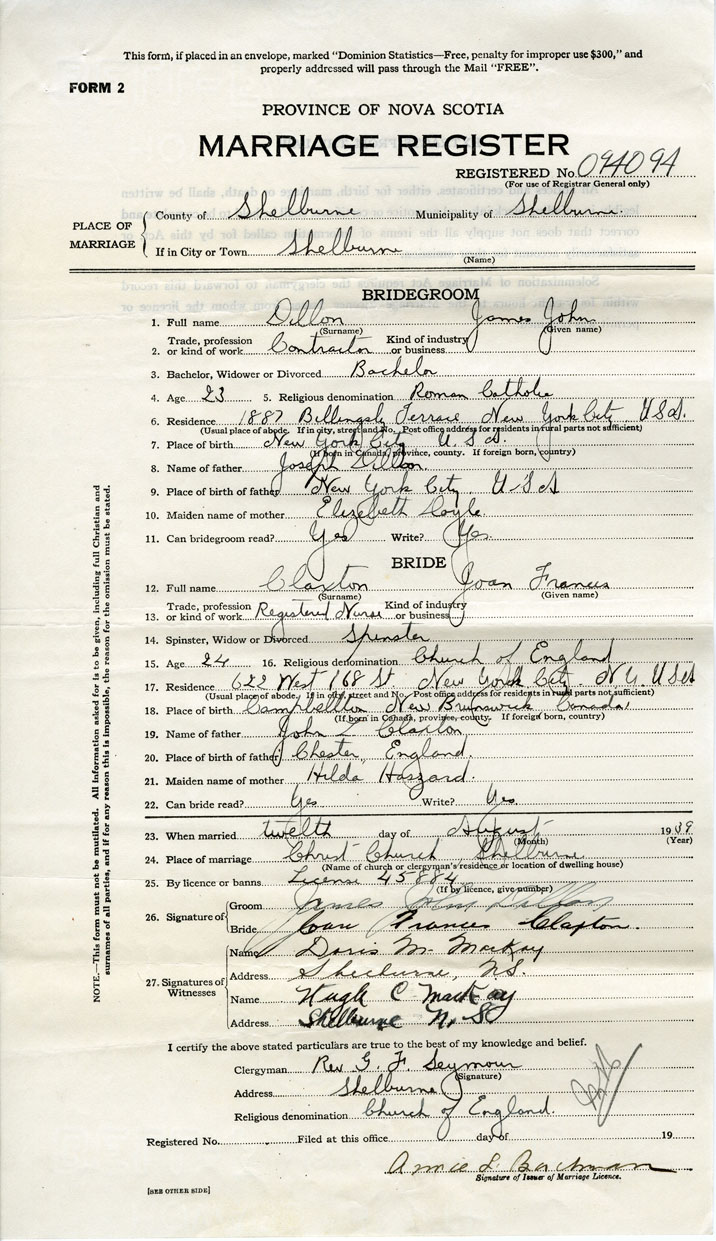 This form, if placed in an envelope, marked "Dominion Statistics—Free, penalty for improper use $300," and
properly addressed will pass through the Mail "FREE".
FORM 2
PROVINCE OF NOVA SCOTIA
MARRIAGE REGISTER
REGISTERED No. 094094
(For use of Registrar General only)
PLACE OF MARRIAGE
County of Shelburne Municipality of Shelburne.
If in City or Town Shelburne
(Name)
BRIDEGROOM
1. Full name Dillon James John
(Surname) (Given name)
2. Trade, profession or kind of work Contractor Kind of industry or business
3. Bachelor, Widower or Divorced Bachelor
4. Age 23 5. Religious denomination Roman Catholic
6. Residence 1887 Billingsly Terrace New York City USA.
(Usual place of abode. If in city, street and No. Post office address for residents in rural parts not sufficient)
7. Place of birth New York City U.S.A.
(If born in Canada, province, county. If foreign born, country)
8. Name of father Joseph Dillon
9. Place of birth of father New York City U-S-A
10. Maiden name of mother Elizabeth Coyle
11. Can bridegroom read? Yes Write? Yes.
BRIDE
12. Full name Claxton Joan Frances
(Surname) (Given name)
13. Trade, profession or kind of work Registered Nurse Kind of industry or business
14. Spinster, Widow or Divorced Spinster
15. Age 24 16. Religious denomination Church of England
17. Residence 622 West 168 St. New York City. N.Y. USA
(Usual place of abode. If in city, street and No. Post office address for residents in rural parts not sufficient)
18. Place of birth Campbellton New Brunswick Canada,
(If born in Canada, province, county. If foreign born, country)
19. Name of father John L Claxton
20. Place of birth of father Chester, England.
21. Maiden name of mother Hilda Haszard.
22. Can bride read? Yes Write? Yes.
23. When married twelth day of August 1939
(Month) (Year)
24. Place of marriage Christ Church Shelburne
(Name of church or clergyman's residence or location of dwelling house)
25. By licence or banns License 45884
(If by licence, give number)
26. Signature of
Groom James John Dillon
Bride Joan Frances Claxton.
27. Signatures of Witnesses
Name Doris M. MacKay
Address Shelburne, N.S.
Name Hugh C MacKay
Address Shelburne N.S.
I certify the above stated particulars are true to the best of my knowledge and belief.
Clergyman Rev G. F. Seymour
(Signature)
Address Shelburne
Religious denomination Church of England.
Registered No. Filed at this office day of 19
Annie L. Bachman
Signature of Issuer of Marriage Licence.
[SEE OTHER SIDE]
NOTE.—This form must not be mutilated. All information asked for is to be given, including full Christian and
surnames of all parties, and if for any reason this is impossible, the reason for the omission must be stated.